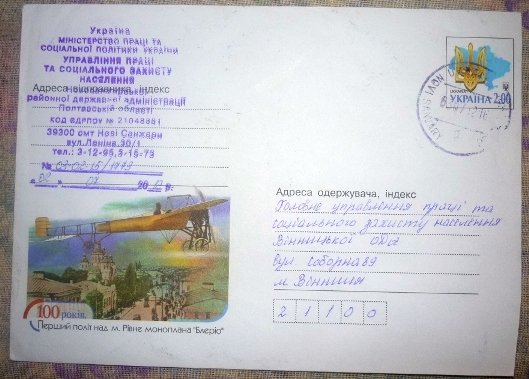 Україна
МІНІСТЕРСТВО ПРАЦІ ТА
СОЦІАЛЬНОЇ ПОЛІТИКИ УКРАЇНИ
УПРАВЛІННЯ ПРАЦІ
ТА СОЦІАЛЬНОГО ЗАХИСТУ
НАСЕЛЕННЯ
Адреса відправника, індекс
Новосанжарської
районної державної адміністрації
Полтавської області
код ЄДРПОУ № 21048881
39300 смт Нові Санжари
вул.Леніна,30/1
тел.: 3-12-95,3-15-73
УКРАЇНА 2,00
Адреса одержувача, індекс
Головне управління праці та
соціального захисту населення
Вінницької ОДА
вул соборна 59
м Вінниця
21100
100 років
Перший політ над м. Рівне моноплана "Блеріо"